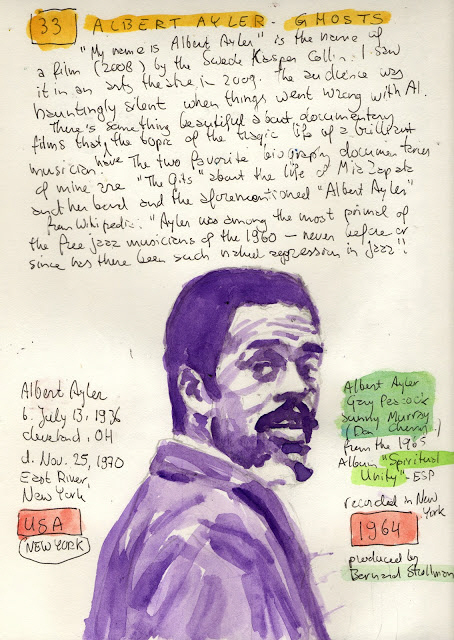 33 ALBERT AYLER - GHOSTS
"My name is Albert Ayler" is the name of
a film (2008) by the Swede Kasper Collin. I saw
it in an arts theatre in 2009. The audience was
hauntingly silent when things went wrong with Al.
There's something beautiful about documentary
films that have the topic of the tragic life of a brilliant
musician. The two favorite biography documentaries
of mine are "The Gits" about the life of Mia Zapata
and her band and the aforementioned "Albert Ayler"
from Wikipedia: "Ayler was among the most primal of
the free jazz musicians of the 1960 — never before or
since has there been such naked aggression in jazz".
Albert Ayler
b. July 13, 1936
Cleveland, OH
d. Nov. 25, 1970
East River,
New York
USA
NEW YORK
Albert Ayler
Gary Peacock
Sunny Murray
(Don Cherry)
from the 1965
Album "Spiritual
Unity" - ESP
recorded in New
York
1964
produced by
Bernard Stollman